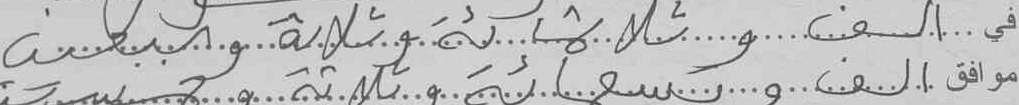 في الف و ثلاثمائة و ثلاثة و سبعين
موافق الف و تسعمائة و ثلاثة و خمسين